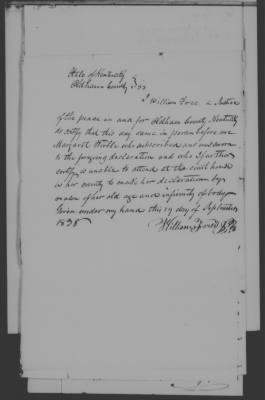 State of Kentucky
Oldham County } SS
I William Force a Justice
of the peace in and for Oldham County Kentucky
do certify that this day came in person before me
Margaret who subscribed and was sworn
to the forgoing declaration and who I further
certify is unable to attend at the court house
in her county to make her declaration by
reason of her old age and infirmity of body
Given under my hand this 19 day of September
1838
William Force JP